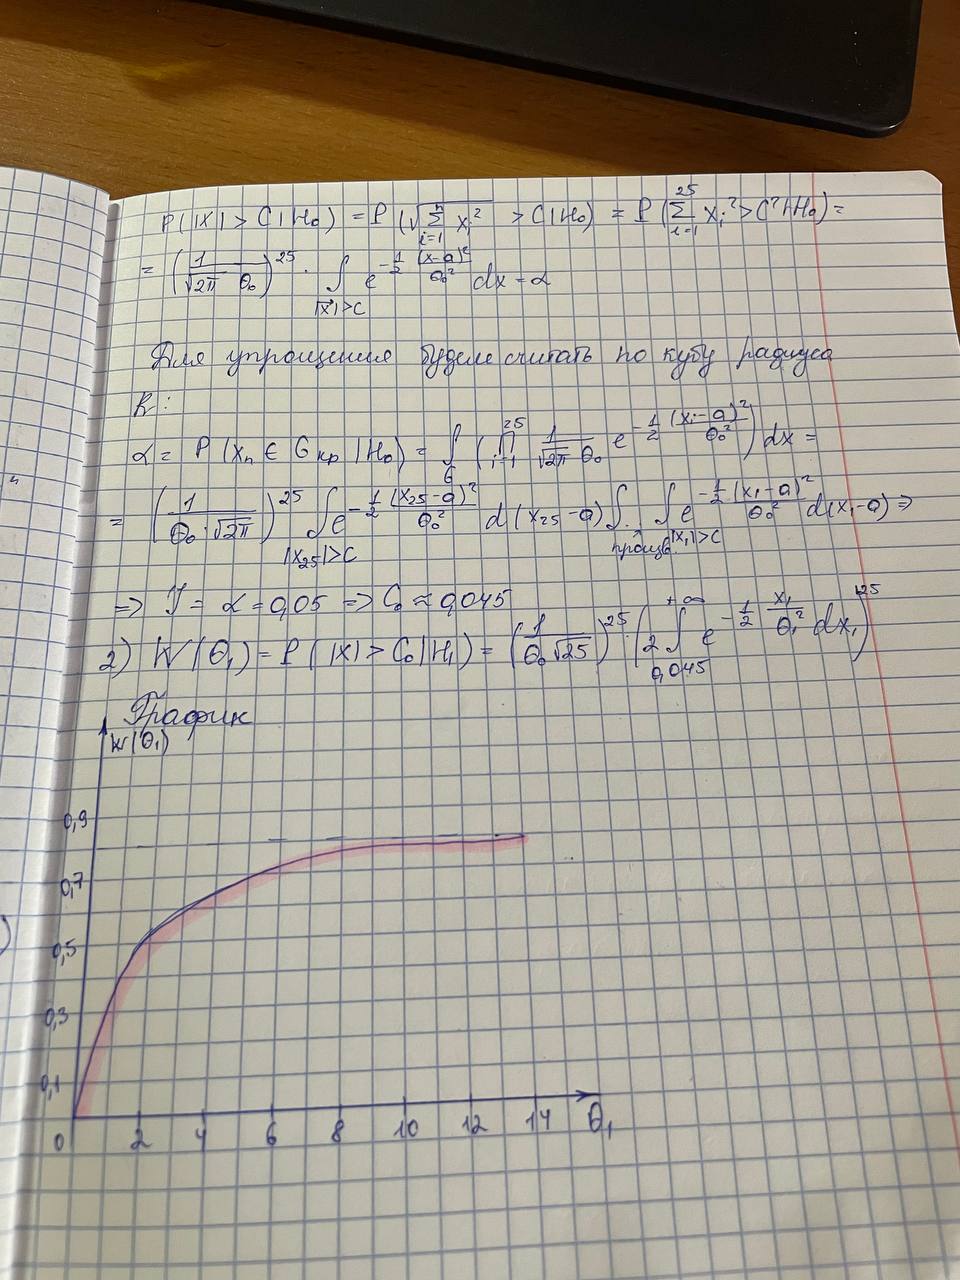 P(|X| > C | H₀) = P(√(∑ᵢ₌₁ⁿ xᵢ²) > C | H₀) = P(∑ᵢ₌₁²⁵ xᵢ² > C² | H₀) =
= (1/(√2π θ₀))²⁵ · ∫_{|x⃗|>C} e^{-1/2 (x-a)²/θ₀²} dx = α
Для упрощения будем считать по кубу радиуса
R:
α = P(xₙ ∈ Gкр | H₀) = ∫_G (∏ᵢ₌₁²⁵ 1/(√2π θ₀) e^{-1/2 (xᵢ-a)²/θ₀²}) dx =
= (1/(θ₀·√2π))²⁵ ∫_{|x₂₅|>C} e^{-1/2 (x₂₅-a)²/θ₀²} d(x₂₅-a) ∫... ∫_{|x₁|>C} e^{-1/2 (x₁-a)²/θ₀²} d(x₁-a) ⇒
⇒ J = α = 0,05 ⇒ C₀ ≈ 0,045
2) W(θ₁) = P(|X| > C₀ | H₁) = (1/(θ₀√25))²⁵ · (2 ∫_{0,045}^{+∞} e^{-1/2 x₁/θ₁²} dx₁)²⁵
График
W(θ₁)
0,9
0,7
0,5
0,3
0,1
0 2 4 6 8 10 12 14 θ₁